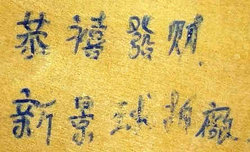 恭禧發財
新景球拍廠